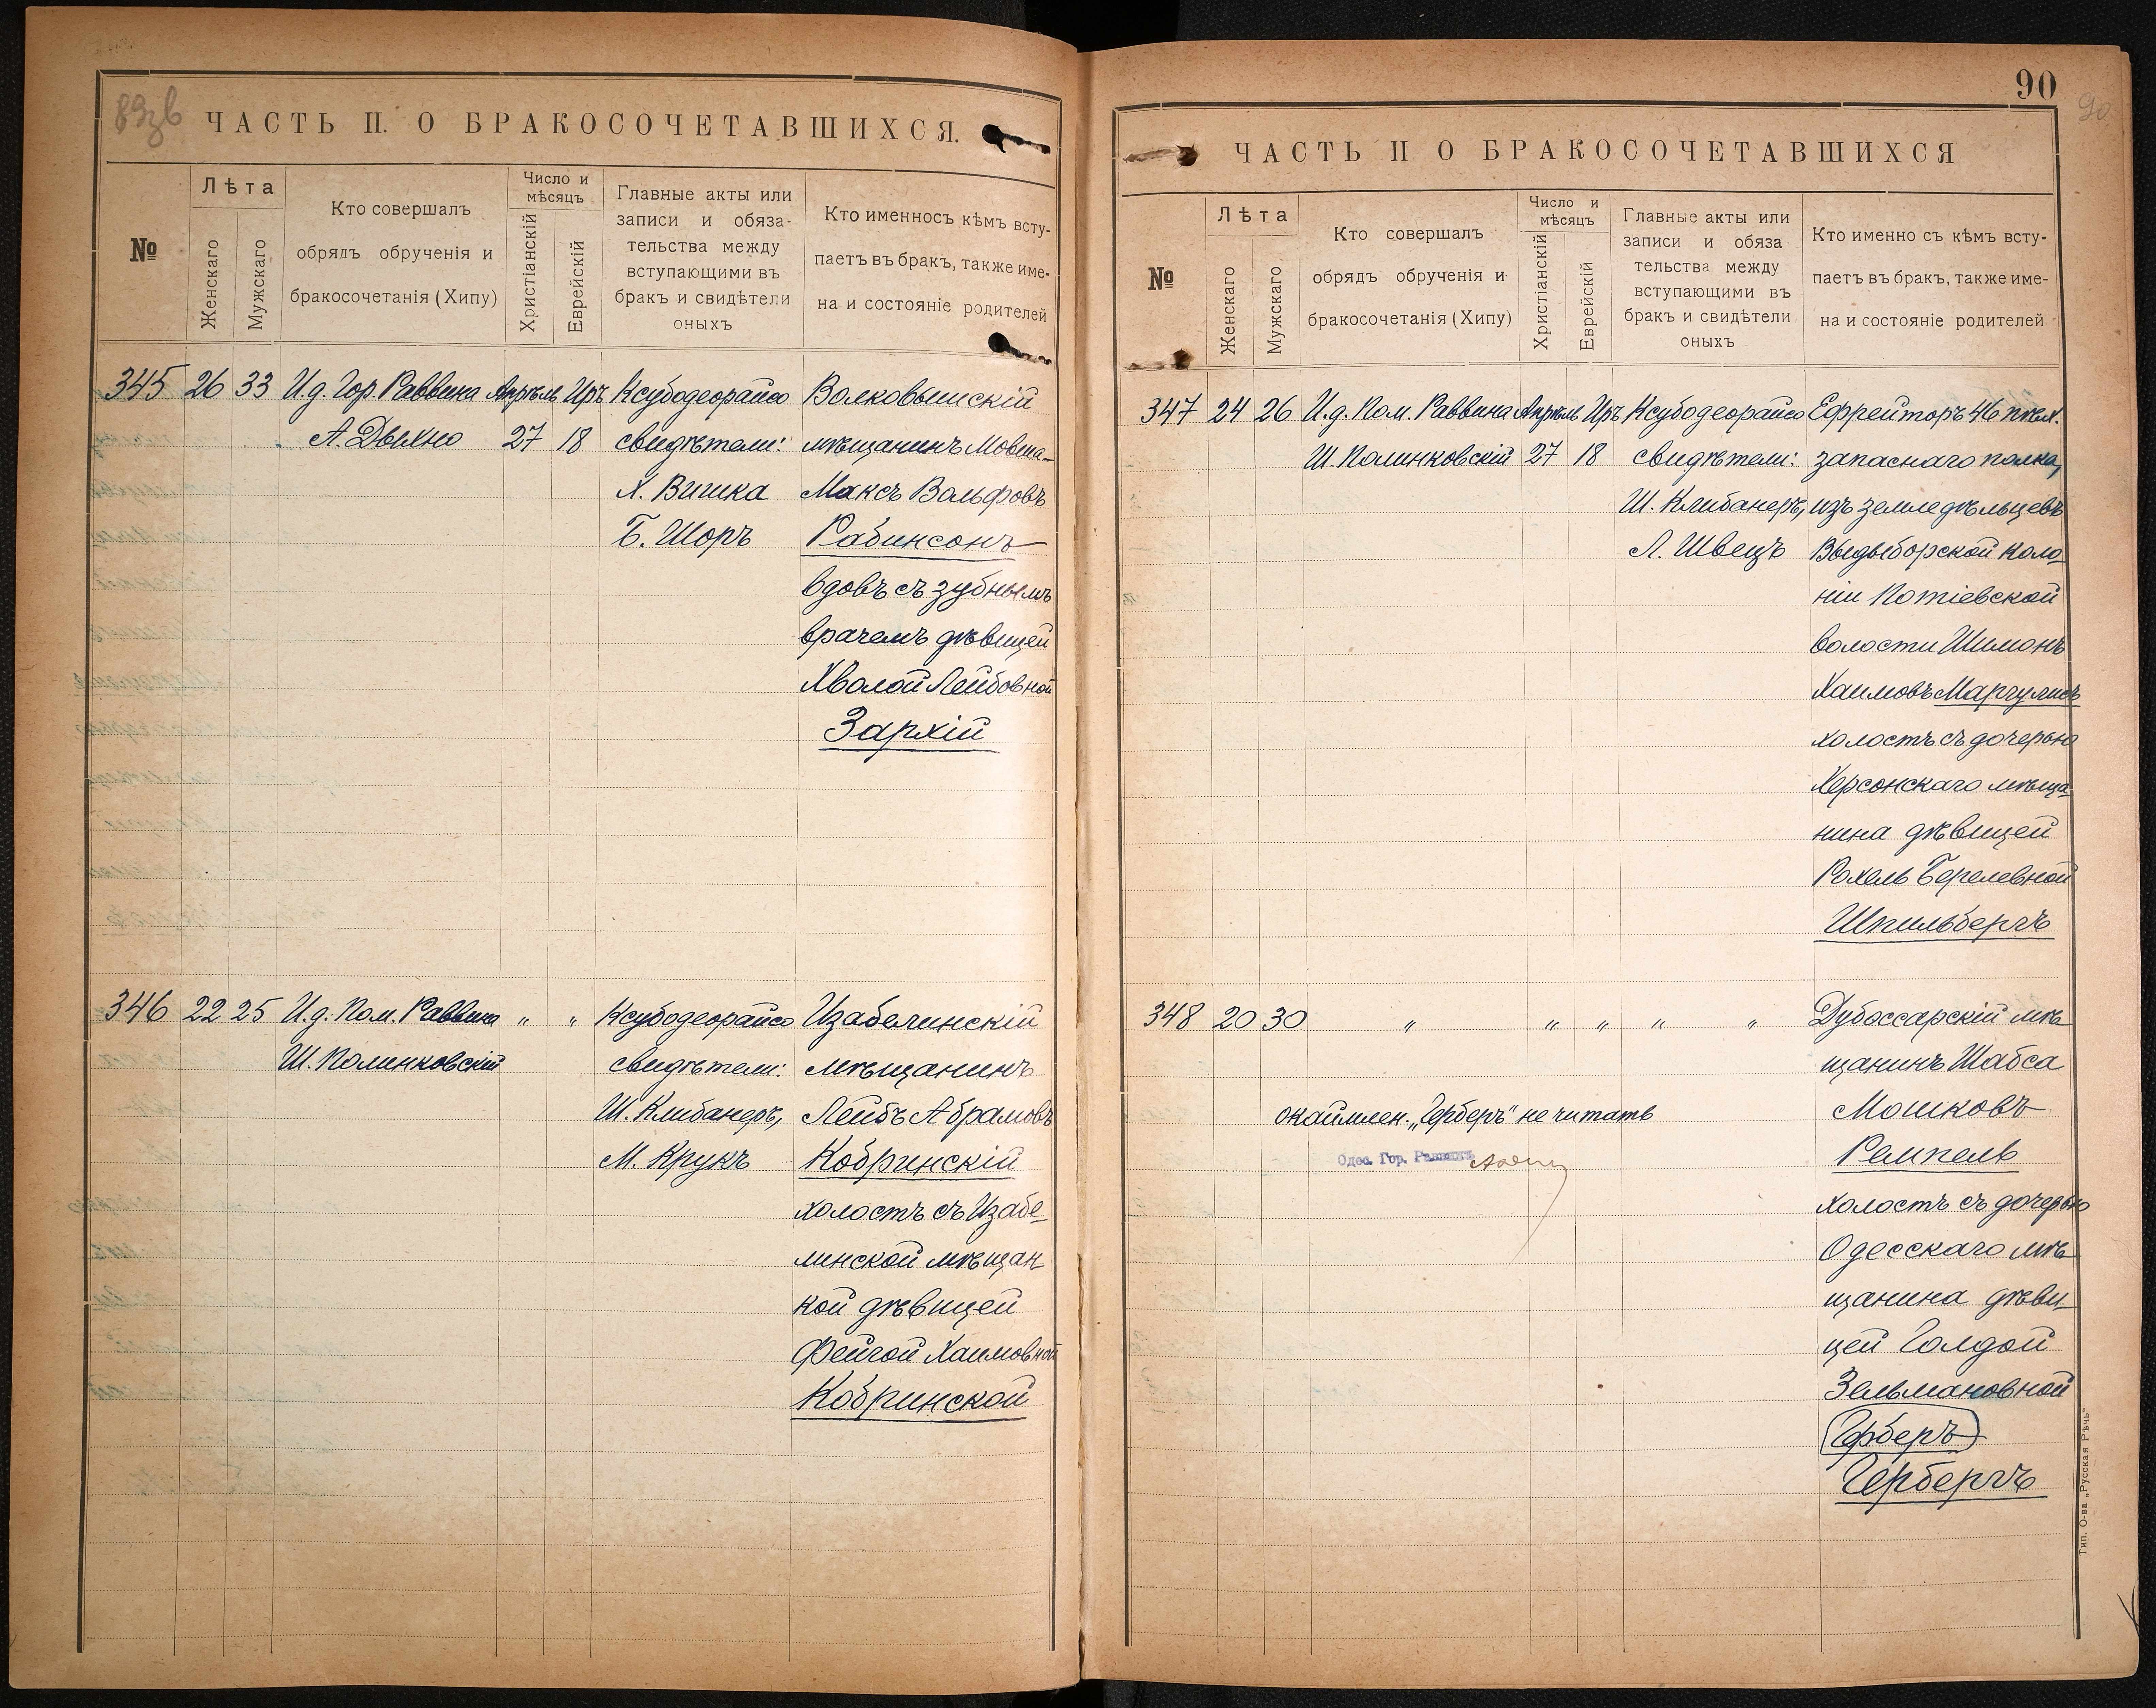 ЧАСТЬ II. О БРАКОСОЧЕТАВШИХСЯ.
№
Лѣта
Женскаго
Мужскаго
Кто совершалъ
обрядъ обрученія и
бракосочетанія (Хипу)
Число и
мѣсяцъ
Христіанскій
Еврейскій
Главные акты или
записи и обяза-
тельства между
вступающими въ
бракъ и свидѣтели
оныхъ
Кто именносъ кѣмъ всту-
паетъ въ бракъ, также име-
на и состояніе родителей
345 26 33 И.д. Гор. Раввина Апрѣль Иръ Ксубодеорайсо Волковышскій
А. Дыхно 27 18 свидѣтели: мѣщанинъ Мовша-
Х. Вишка Максъ Вольфовъ
Б. Шоръ Рабинсонъ
вдовъ съ зубнымъ
врачемъ дѣвицей
Хволой Лейбовной
Зархій
346 22 25 И.д. Пом. Раввина " " Ксубодеорайсо Изабелинскій
Ш. Полинковскій свидѣтели: мѣщанинъ
Ш. Клибанеръ, Лейбъ Абрамовъ
М. Крукъ Кобринскій
холостъ съ Изабе-
линской мѣщан-
кой дѣвицей
Фейгой Хаимовной
Кобринской
90
90
ЧАСТЬ II О БРАКОСОЧЕТАВШИХСЯ
№
Лѣта
Женскаго
Мужскаго
Кто совершалъ
обрядъ обрученія и
бракосочетанія (Хипу)
Число и
мѣсяцъ
Христіанскій
Еврейскій
Главные акты или
записи и обяза
тельства между
вступающими въ
бракъ и свидѣтели
оныхъ
Кто именно съ кѣмъ всту-
паетъ въ бракъ, также име-
на и состояніе родителей
347 24 26 И.д. Пом. Раввина Апрѣль Иръ Ксубодеорайсо Ефрейторъ 46 пѣх.
Ш. Полинковскій 27 18 свидѣтели: запаснаго полка,
Ш. Клибанеръ, изъ земледѣльцевъ
Л. Швецъ Выдыборской коло-
ніи Потіевской
волости Шимонъ
Хаимовъ Маргулисъ
холостъ съ дочерью
Херсонскаго мѣща-
нина дѣвицей
Рохель Берелевной
Шпильбергъ
348 20 30 " " " " " Дубоссарскій мѣ-
щанинъ Шабса
окаймлен. „Герберъ" не читать Мошковъ
Одес. Гор. Раввинъ Ремпель
холостъ съ дочерью
Одесскаго мѣ-
щанина дѣви-
цей Голдой
Зельмановной
Герберъ
Гербергъ
Тип. О-ва „Русская Рѣчь"